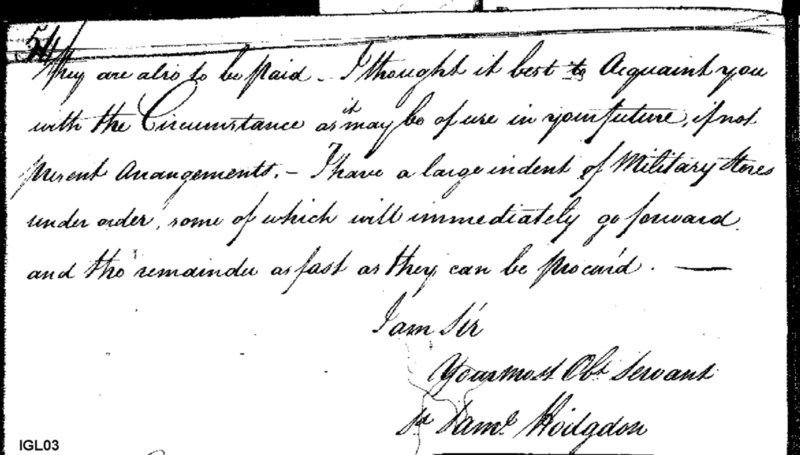 54
they are also to be paid – I thought it best to Acquaint you
with the Circumstance as it may be of use in your future, if not
present Arrangements. – I have a large indent of Military Stores
under order, some of which will immediately go forward.
and the remainder as fast as they can be procur'd. —
I am Sir
Your most Obt Servant
Saml Hodgdon
IGL03